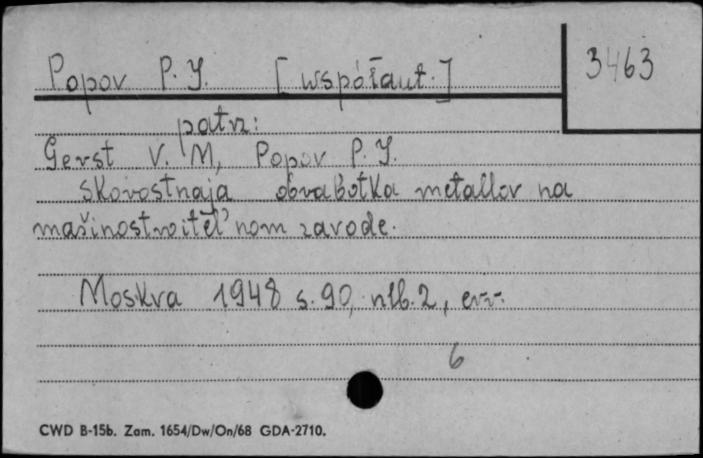 Popov P. J. [współaut.]
3463
patrz:
Gerst V. M, Popov P. J.
Skorostnaja obrabotka metallov na
mašinostroitel'nom zavode.
Moskva 1948 s. 90, nlb. 2, err.
6
CWD B-15b. Zam. 1654/Dw/On/68 GDA-2710.